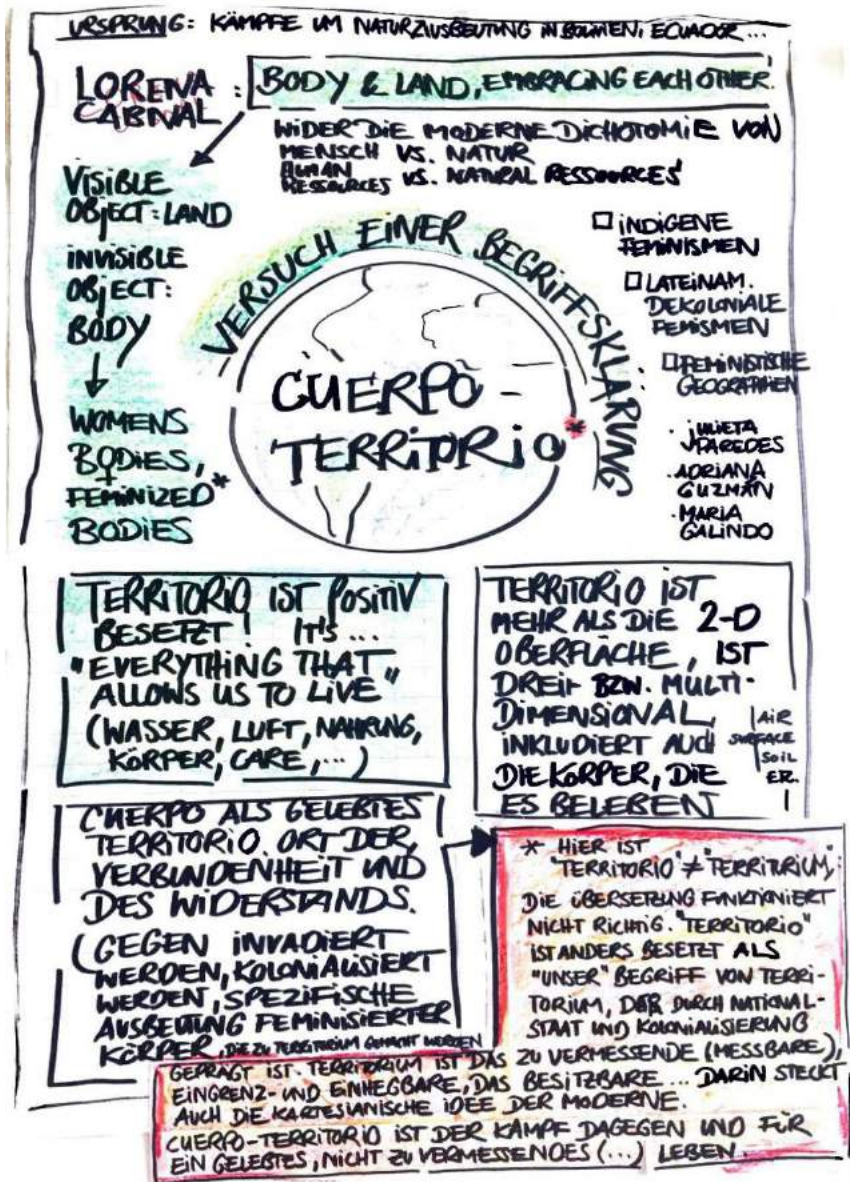 URSPRUNG: KÄMPFE UM NATURAUSBEUTUNG IN BOLIVIEN, ECUADOR ...
LORENA
CABNAL :
BODY & LAND, EMBRACING EACH OTHER.
WIDER DIE MODERNE DICHOTOMIE VON
MENSCH VS. NATUR
HUMAN
RESSOURCES VS. NATURAL RESSOURCES'
VISIBLE
OBJECT: LAND
INVISIBLE
OBJECT:
BODY
WOMENS
BODIES,
+
FEMINIZED*
BODIES
VERSUCH EINER BEGRIFFSKLÄRUNG
CUERPO -
TERRITORIO*
INDIGENE
FEMINISMEN
LATEINAM.
DEKOLONIALE
FEMISMEN
FEMINISTISCHE
GEOGRAPHIEN
· JULIETA
PAREDES
· ADRIANA
GUZMÁN
· MARIA
GALINDO
TERRITORIO IST POSITIV
BESETZT! IT'S ...
"EVERYTHING THAT
ALLOWS US TO LIVE"
(WASSER, LUFT, NAHRUNG,
KÖRPER, CARE, ...)
TERRITORIO IST
MEHR ALS DIE 2-D
OBERFLÄCHE, IST
DREI- BZW. MULTI-
DIMENSIONAL,
INKLUDIERT AUCH
DIE KÖRPER, DIE
ES BELEBEN
AIR
SURFACE
SOIL
ER.
CUERPO ALS GELEBTES
TERRITORIO. ORT DER
VERBUNDENHEIT UND
DES WIDERSTANDS.
(GEGEN INVADIERT
WERDEN, KOLONIALISIERT
WERDEN, SPEZIFISCHE
AUSBEUTUNG FEMINISIERTER
KÖRPER, DIE ZU TERRITORIUM GEMACHT WERDEN
* HIER IST
"TERRITORIO" ≠ "TERRITORIUM":
DIE ÜBERSETZUNG FUNKTIONIERT
NICHT RICHTIG. "TERRITORIO"
IST ANDERS BESETZT ALS
"UNSER" BEGRIFF VON TERRI-
TORIUM, DER DURCH NATIONAL-
STAAT UND KOLONIALISIERUNG
GEPRÄGT IST. TERRITORIUM IST DAS ZU VERMESSENDE (MESSBARE),
EINGRENZ- UND EINHEGBARE, DAS BESITZBARE ... DARIN STECKT
AUCH DIE KARTESIANISCHE IDEE DER MODERNE.
CUERPO-TERRITORIO IST DER KAMPF DAGEGEN UND FÜR
EIN GELEBTES, NICHT ZU VERMESSENDES (...) LEBEN.